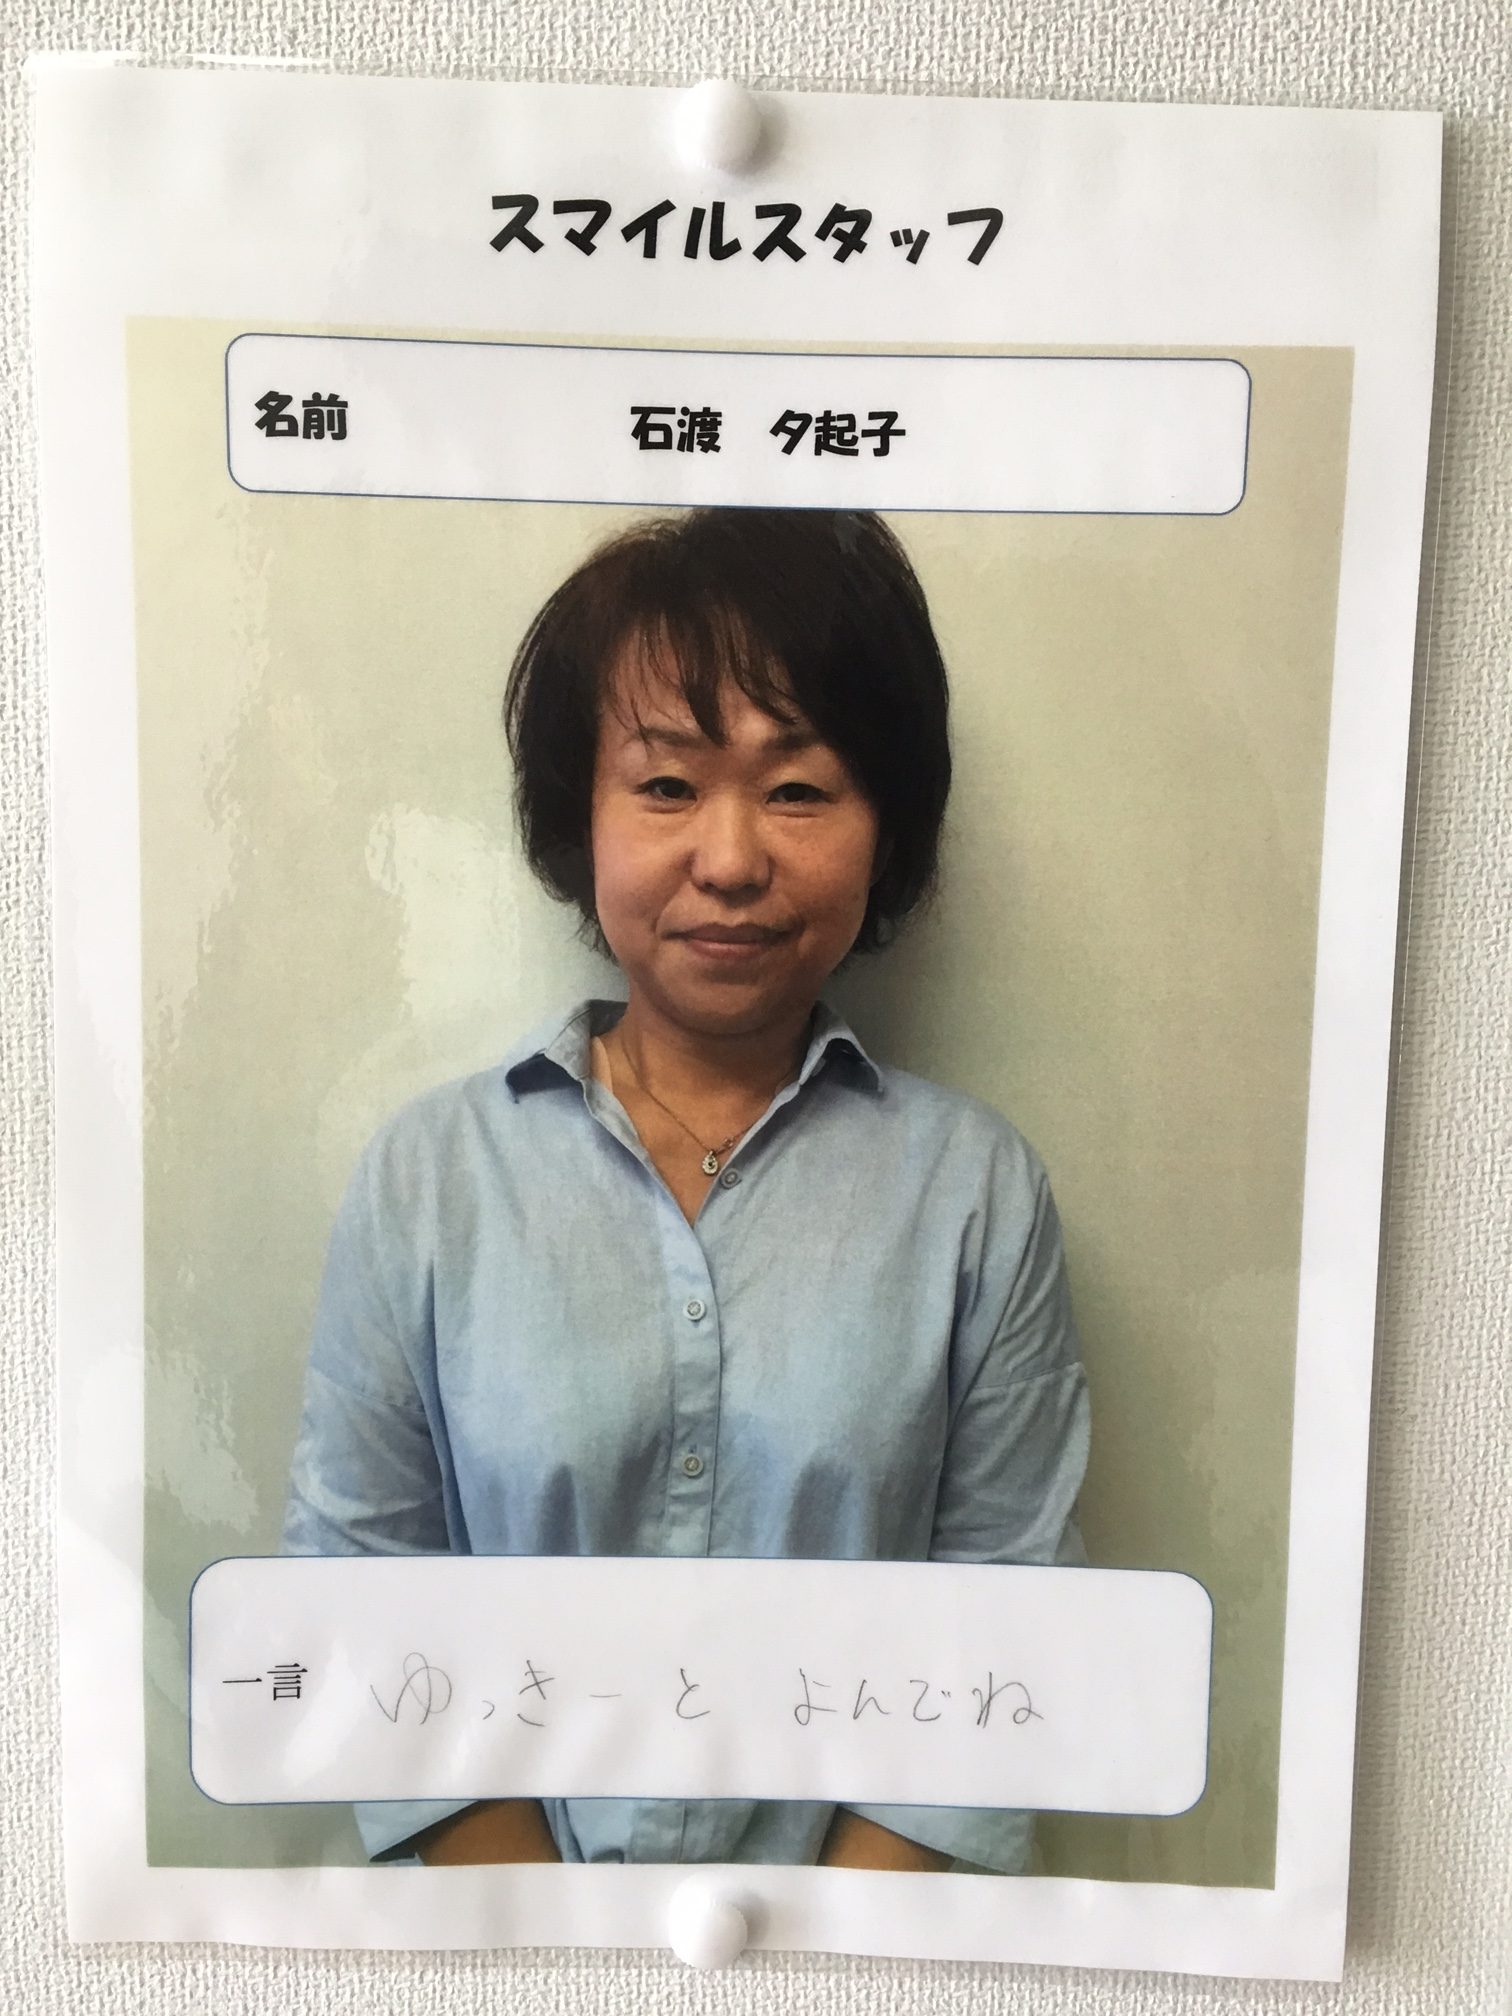 スマイルスタッフ
名前 石渡 夕起子
一言 ゆっきーと よんでね